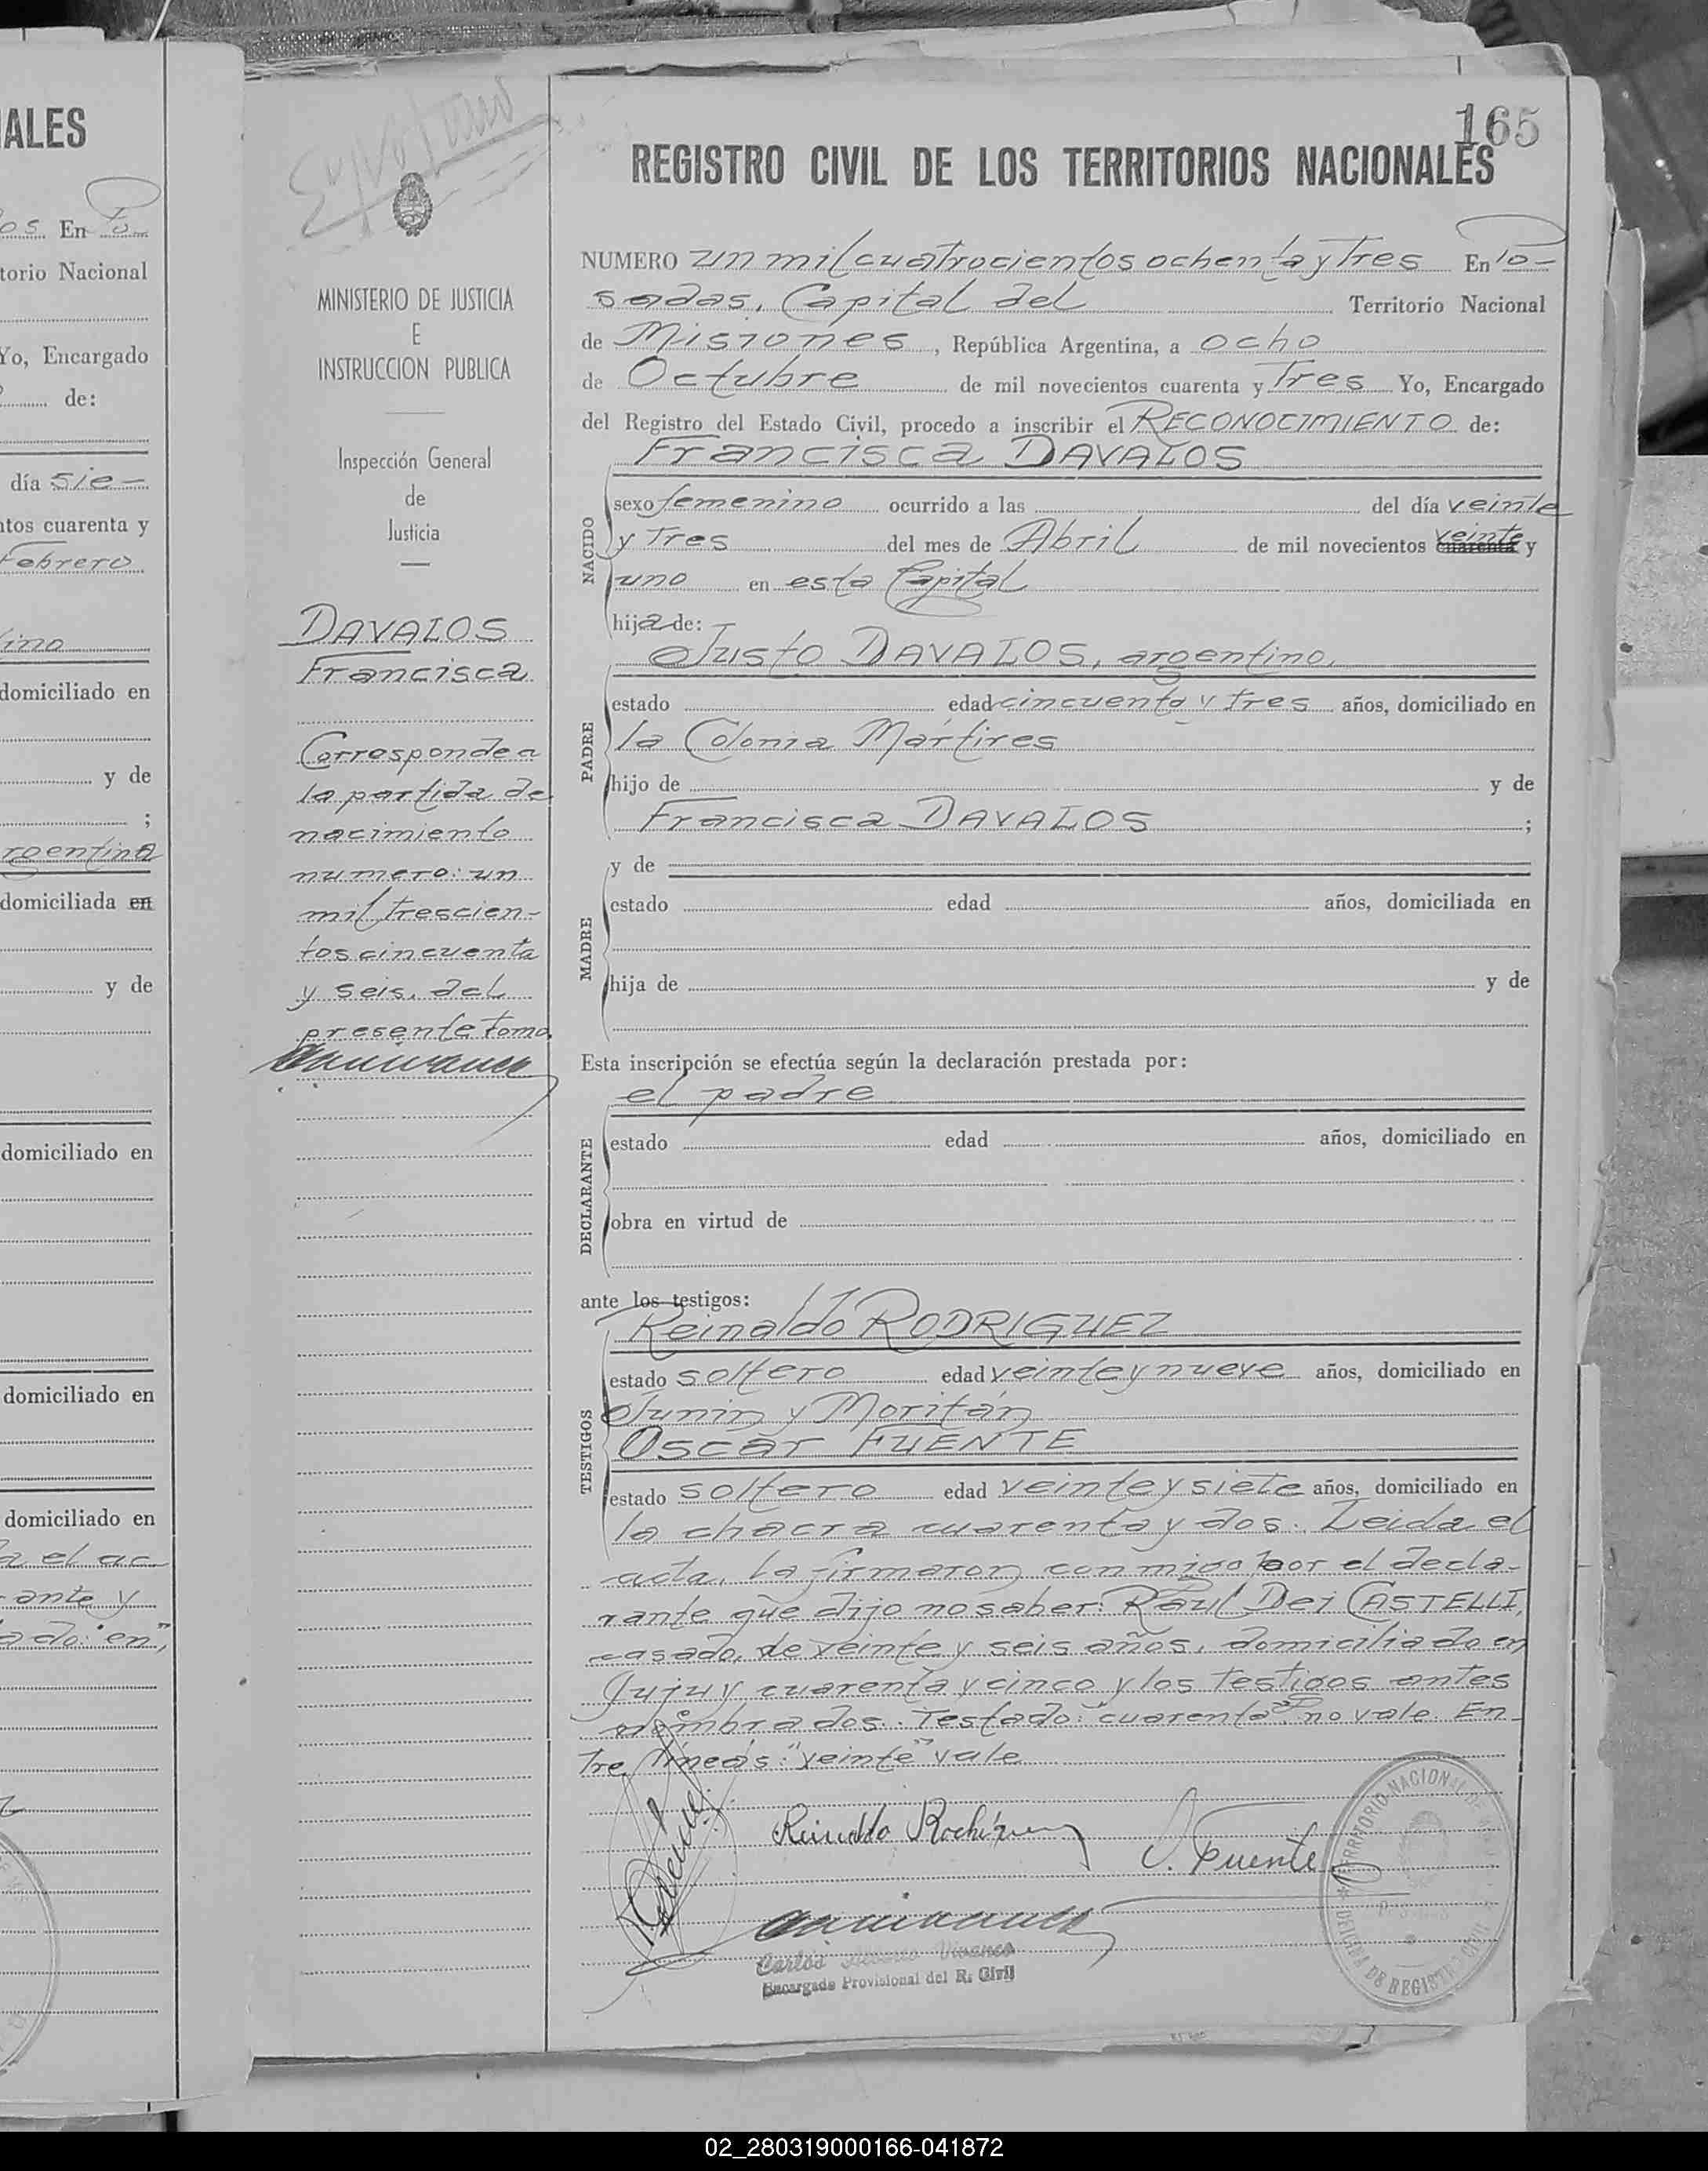 ALES
os. En Po-
torio Nacional
Yo, Encargado
de:
día sie-
ntos cuarenta y
Febrero
ino
domiciliado en
y de
;
rgentina
domiciliada en
y de
domiciliado en
domiciliado en
domiciliado en
a el ac
ante y
ado: "en",
MINISTERIO DE JUSTICIA
E
INSTRUCCION PUBLICA
Inspección General
de
Justicia
DAVALOS
Francisca
Corresponde a
la partida de
nacimiento
numero: un
mil trescien-
tos cincuenta
y seis, del
presente tomo.
165
REGISTRO CIVIL DE LOS TERRITORIOS NACIONALES
NUMERO un mil cuatrocientos ochenta y Tres En Po-
sadas, Capital del Territorio Nacional
de Misiones, República Argentina, a ocho
de Octubre de mil novecientos cuarenta y Tres Yo, Encargado
del Registro del Estado Civil, procedo a inscribir el RECONOCIMIENTO de:
Francisca DAVALOS
NACIDO
sexo femenino ocurrido a las del día veinte
y Tres del mes de Abril de mil novecientos cuarenta veinte y
uno en esta Capital
hija de:
Justo DAVALOS, argentino,
PADRE
estado edad cincuenta y tres años, domiciliado en
la Colonia Mártires
hijo de y de
Francisca DAVALOS ;
MADRE
y de
estado edad años, domiciliada en
hija de y de
Esta inscripción se efectúa según la declaración prestada por:
el padre
DECLARANTE
estado edad años, domiciliado en
obra en virtud de
ante los testigos:
Reinaldo RODRIGUEZ
TESTIGOS
estado soltero edad veinte y nueve años, domiciliado en
Junin y Moritán
Oscar FUENTE
estado soltero edad veinte y siete años, domiciliado en
la chacra cuarenta y dos. Leida el
acta, la firmaron conmigo por el decla-
rante que dijo no saber: Raúl Dei CASTELLI,
casado, de veinte y seis años, domiciliado en
Jujuy cuarenta y cinco y los Testigos antes
nombrados. Testado: "cuarenta" no vale. En-
tre líneas: "veinte" vale
Reinaldo Rodríguez
O. Fuente
Carlos Alberto Vivanco
Encargado Provisional del R. Civil
TERRITORIO NACIONAL DE
OFICINA DE REGISTRO CIVIL
02_280319000166-041872